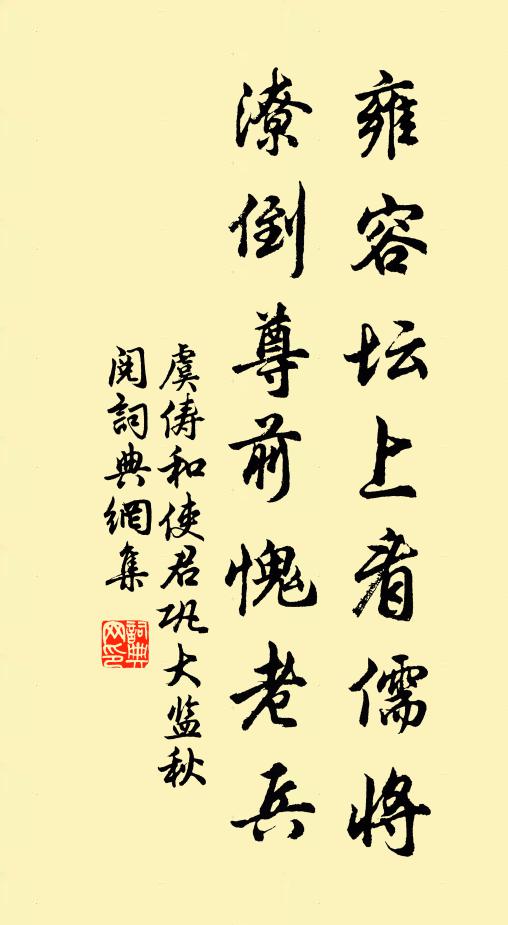 雍容坛上看儒将
潦倒尊前愧老兵
虞俦和使君巩大监秋
阅詞典網集
詞典網印